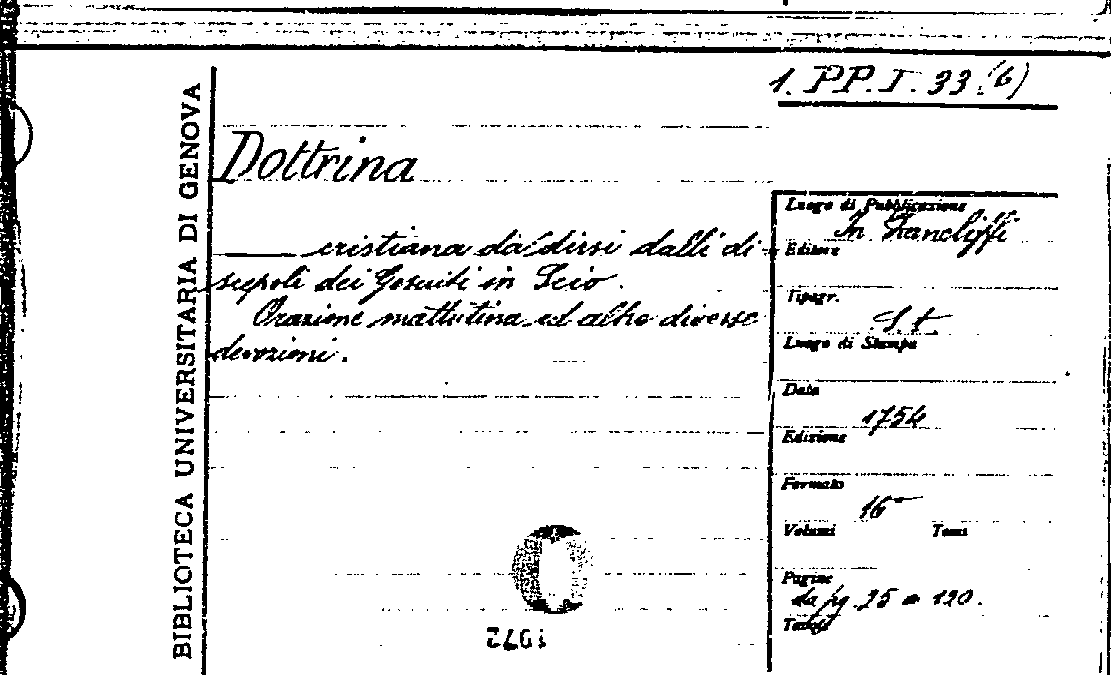 BIBLIOTECA UNIVERSITARIA DI GENOVA
1. P.P. I. 33 (6)
Dottrina
cristiana da dirsi dalli di
scepoli dei Gesuiti in Scio.
Orazione mattutina ed altre diverse
devozioni.
Luogo di Pubblicazione
In
Editore
Tipogr.
S. t.
Luogo di Stampa
Data
1754
Edizione
Formato
16°
Volumi Tomi
Pagine
da pg. 25 a 120.
Tavole